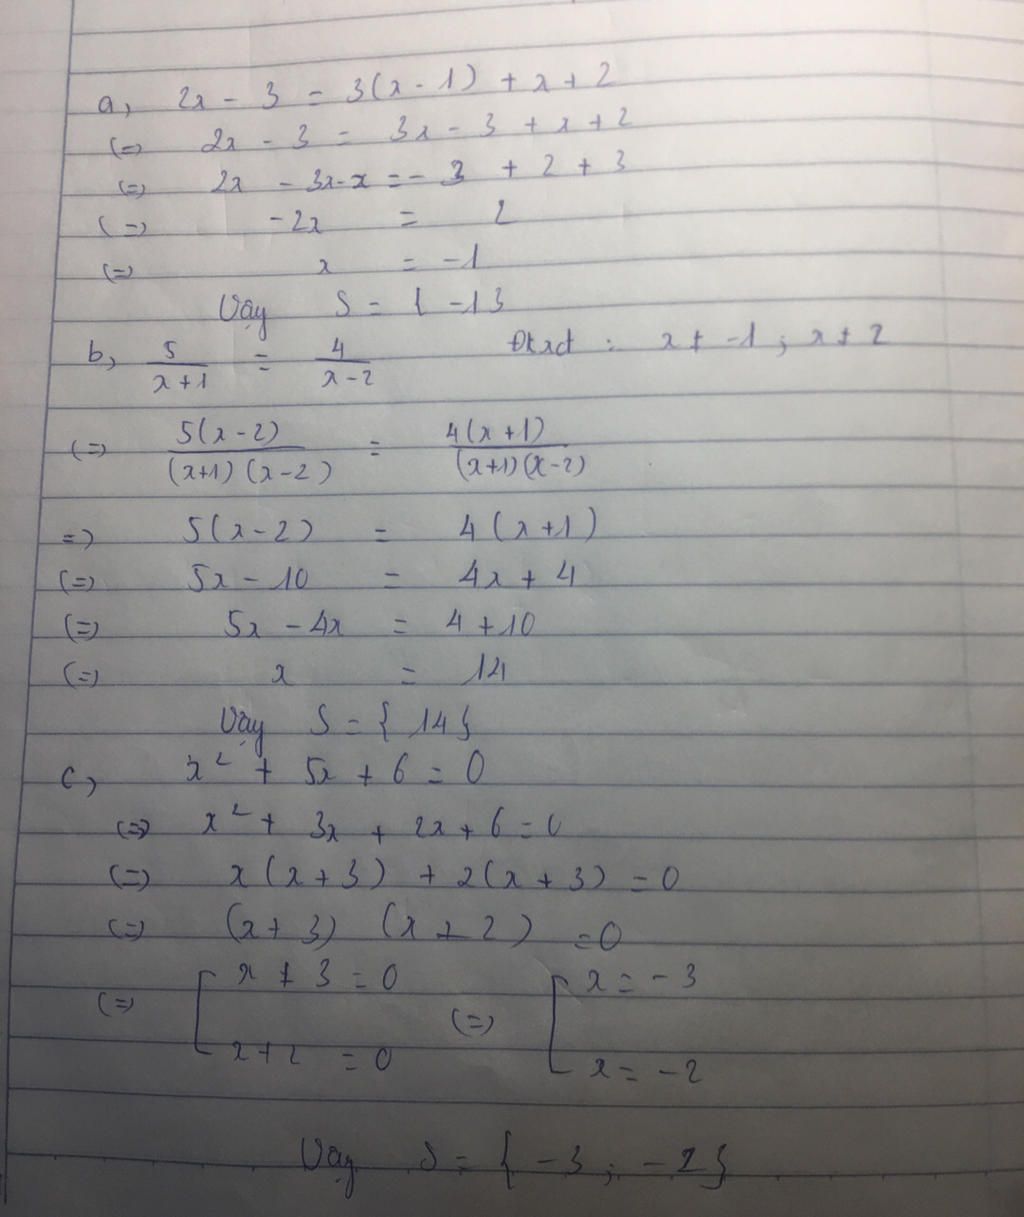 a, 2x - 3 = 3(x - 1) + x + 2
(=) 2x - 3 = 3x - 3 + x + 2
(=) 2x - 3x - x = - 3 + 2 + 3
(=) -2x = 2
(=) x = -1
Vậy S = { -1}
b, 5/(x+1) = 4/(x-2) Đkxđ : x ≠ -1 ; x ≠ 2
(=) 5(x-2)/(x+1)(x-2) = 4(x+1)/(x+1)(x-2)
=) 5(x-2) = 4(x+1)
(=) 5x - 10 = 4x + 4
(=) 5x - 4x = 4 + 10
(=) x = 14
Vậy S = { 14}
c, x² + 5x + 6 = 0
(=) x² + 3x + 2x + 6 = 0
(=) x(x+3) + 2(x+3) = 0
(=) (x+3) (x+2) = 0
(=) [ x + 3 = 0 (=) [ x = -3
x+2 = 0 x = -2
Vậy S = { -3 ; -2}